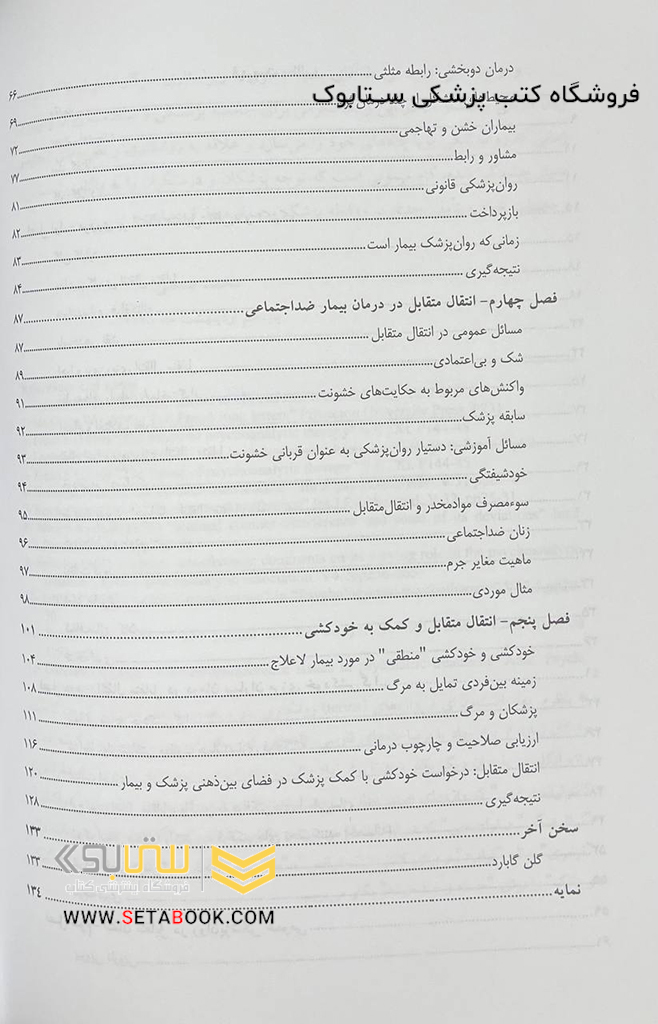 درمان دوبخشی: رابطه مثلثی ۶۶
فروشگاه کتب پزشکی ستابوک
۶۹
بیماران خشن و تهاجمی ۷۲
مشاور و رابط ۷۷
روان‌پزشکی قانونی ۸۱
بازپرداخت ۸۲
زمانی‌که روان‌پزشک بیمار است ۸۳
نتیجه‌گیری ۸۴
فصل چهارم- انتقال متقابل در درمان بیمار ضداجتماعی ۸۷
مسائل عمومی در انتقال متقابل ۸۷
شک و بی‌اعتمادی ۸۹
واکنش‌های مربوط به حکایت‌های خشونت ۹۱
سابقه پزشک ۹۲
مسائل آموزشی: دستیار روان‌پزشکی به عنوان قربانی خشونت ۹۳
خودشیفتگی ۹۴
سوءمصرف موادمخدر و انتقال‌متقابل ۹۵
زنان ضداجتماعی ۹۶
ماهیت مغایر جرم ۹۷
مثال موردی ۹۸
فصل پنجم- انتقال متقابل و کمک به خودکشی ۱۰۱
خودکشی و خودکشی "منطقی" در مورد بیمار لاعلاج ۱۰۴
زمینه بین‌فردی تمایل به مرگ ۱۰۸
پزشکان و مرگ ۱۱۱
ارزیابی صلاحیت و چارچوب درمانی ۱۱۶
انتقال متقابل: درخواست خودکشی با کمک پزشک در فضای بین‌ذهنی پزشک و بیمار ۱۲۰
نتیجه‌گیری ۱۲۸
سخن آخر ۱۳۳
گلن گابارد ۱۳۳
نمایه ۱۳۴
ستابوک
فروشگاه اینترنتی کتاب
WWW.SETABOOK.COM